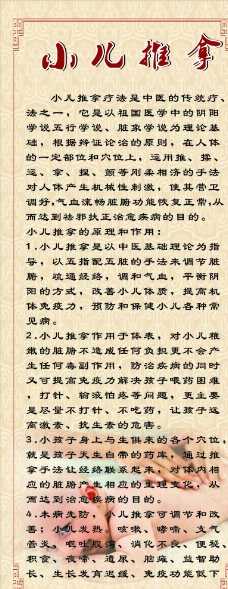 小儿推拿
小儿推拿疗法是中医的传统疗、
法之一，它是以祖国医学中的阴阳
学说五行学说、脏象学说为理论基
础，根据辩证论治的原则，在人体
的一定部位和穴位上，运用推、揉、
运、拿、捏、颤等刚柔相济的手法
对人体产生机械性刺激，使其营卫
调好，气血流畅脏腑功能恢复正常，从
而达到祛邪扶正治愈疾病的目的。
小儿推拿的原理和作用：
1.小儿推拿是以中医基础理论为指
导，以五指配五脏的手法来调节脏
腑，疏通经络，调和气血，平衡阴
阳的方式，改善小儿体质，提高机
体免疫力，预防和保健小儿各种常
见病。
2.小儿推拿作用于体表，对小儿稚
嫩的脏腑不造成任何负担更不会产
生任何毒副作用，防治疾病的同时
又可提高免疫力解决孩子喂药困难
，打针、输液怕疼等问题，更主要
是尽量不打针、不吃药，让孩子远
离激素、抗生素的危害。
3.小孩子身上与生俱来的各个穴位，
就是孩子天生自带的药库，通过推
拿手法让经络联系起来，对体内相
应的脏腑产生相应的生理变化，从
而达到治愈疾病的目的。
4.未病先防，小儿推拿可调节和改
善：小儿发热、咳嗽、哮喘、支气
管炎、呕吐腹泻、消化不良、便秘、
积食、夜啼、遗尿、脑瘫、益智助
长、生长发育迟缓、免疫功能低下